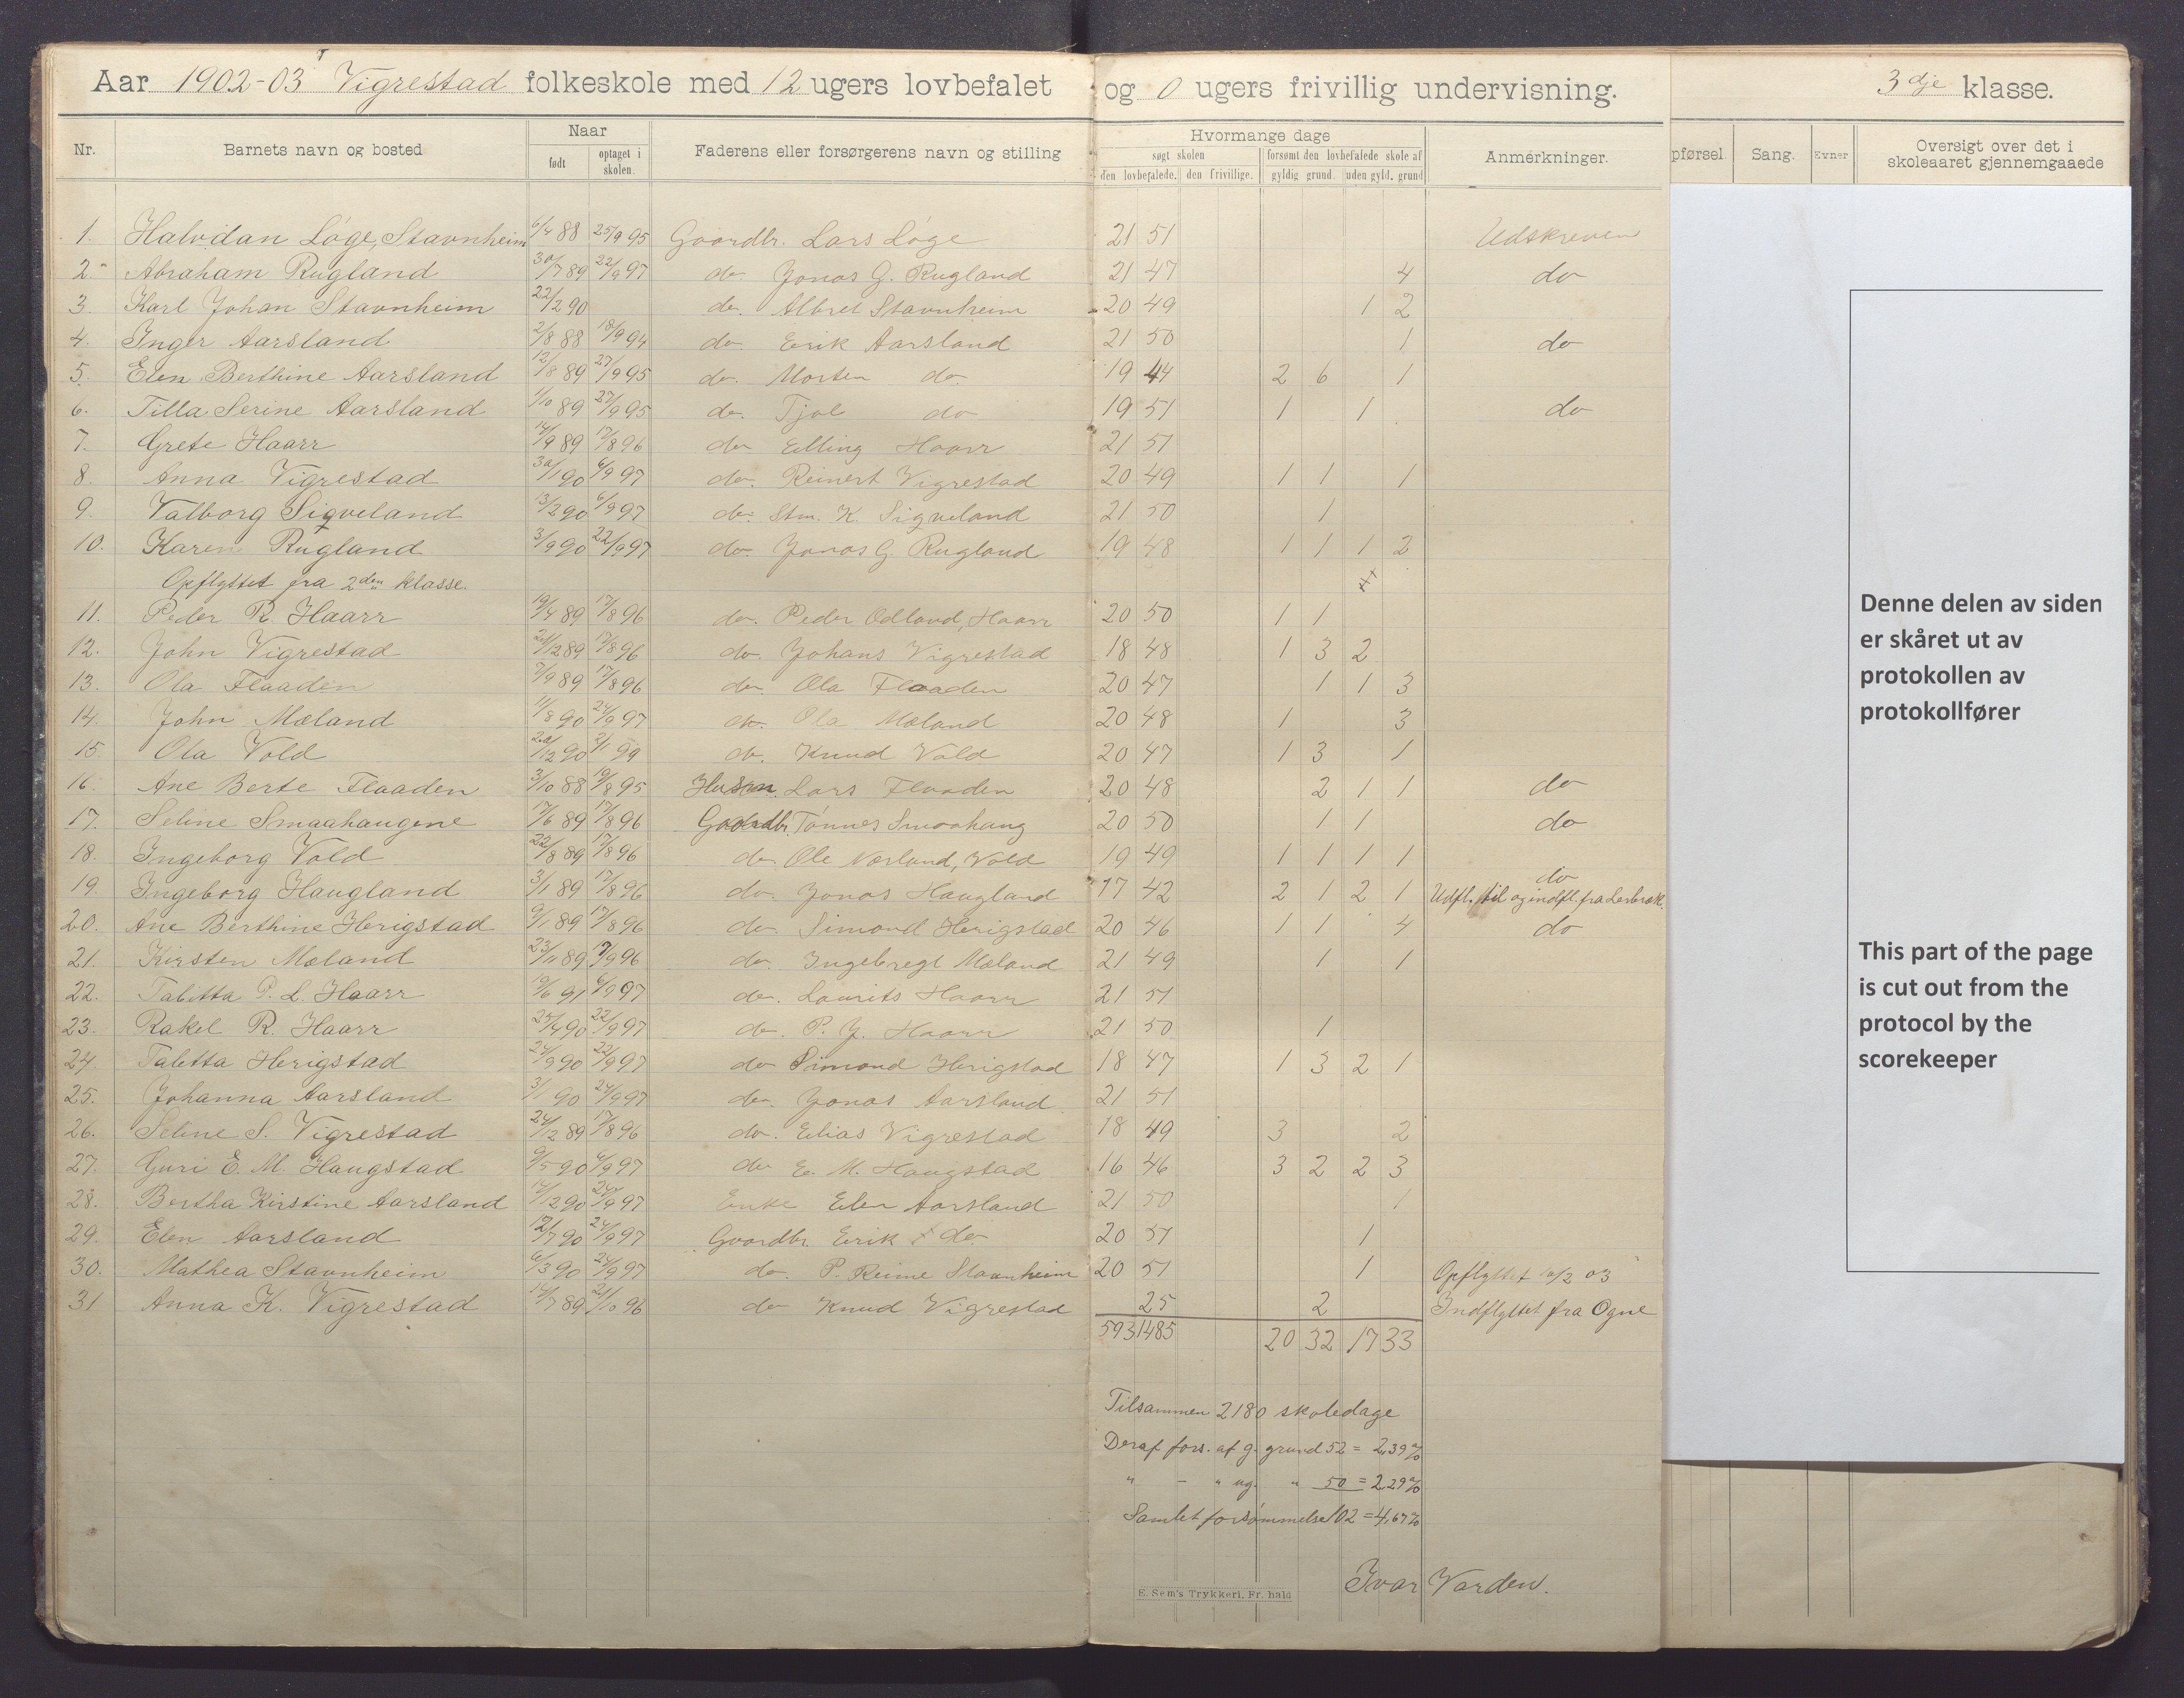 Aar 1902-03 Vigrestad folkeskole med 12 ugers lovbefalet og 0 ugers frivillig undervisning. 3dje klasse.
Nr. Barnets navn og bosted Naar født optaget i skolen. Faderens eller forsørgerens navn og stilling Hvormange dage søgt skolen den lovbefalede. den frivillige. forsømt den lovbefalede skole af gyldig grund. uden gyld. grund Anmerkninger. pførsel. Sang. Evner Oversigt over det i skoleaaret gjennemgaaede
1. Halvdan Løge, Stavnheim 6/4 88 25/9 95 Gaardbr. Lars Løge 21 51 Udskreven
2. Abraham Rugland 30/7 89 22/9 97 do Jonas G. Rugland 21 47 4 do
3. Karl Johan Stavnheim 22/2 90 do. Albret Stavnheim 20 49 1 2
4. Inger Aarsland 2/8 88 18/9 94 do. Eirik Aarsland 21 50 1 do
5. Elen Berthine Aarsland 12/8 89 27/9 95 do. Morten do. 19 44 2 6 1
6. Tilla Serine Aarsland 1/10 89 27/9 95 do. Tjøl do 19 51 1 1 do
7. Grete Haarr 14/9 89 17/8 96 do Elling Haarr 21 51
8. Anna Vigrestad 30/1 90 6/9 97 do. Reinert Vigrestad 20 49 1 1 1
9. Valborg Sigveland 13/2 90 6/9 97 do. Stm. K. Sigveland 21 50 1
10. Karen Rugland 3/9 90 22/9 97 do. Jonas G. Rugland 19 48 1 1 1 2
Opflyttet fra 2den klasse.
11. Peder R. Haarr 19/4 89 17/8 96 do. Peder Odland, Haarr 20 50 1 1
12. John Vigrestad 21/12 89 17/8 96 do. Johans Vigrestad 18 48 1 3 2
13. Ola Flaaden 7/9 89 17/8 96 do. Ola Flaaden 20 47 1 1 3
14. John Mæland 11/8 90 24/9 97 do. Ola Mæland 20 48 1 3
15. Ola Vold 20/12 90 2/1 99 do. Knud Vold 20 47 1 3 1
16. Ane Berte Flaaden 3/10 88 19/8 95 Husm. Lars Flaaden 20 48 2 1 1 do
17. Seline Smaahaugene 17/6 89 17/8 96 Gaardbr. Tønnes Smaahaug 20 50 1 1 do
18. Ingeborg Vold 22/8 89 17/8 96 do. Ole Nærland, Vold 19 49 1 1 1 1
19. Ingeborg Haugland 3/1 89 17/8 96 do. Jonas Haugland 17 42 2 1 2 1 do Udfl. til og indfl. fra
20. Ane Berthine Herigstad 9/1 89 17/8 96 do. Simond Herigstad 20 46 1 1 4 do
21. Kirsten Mæland 23/11 89 7/9 96 do. Ingebregt Mæland 21 49 1 1
22. Tabitta P. L. Haarr 19/6 91 6/9 97 do. Laurits Haarr 21 51
23. Rakel R. Haarr 25/4 90 22/9 97 do. P. J. Haarr 21 50 1
24. Taletta Herigstad 24/9 90 22/9 97 do Simond Herigstad 18 47 1 3 2 1
25. Johanna Aarsland 3/1 90 24/9 97 do. Jonas Aarsland 21 51
26. Seline S. Vigrestad 24/12 89 17/8 96 do. Elias Vigrestad 18 49 3 2
27. Guri E. M. Haugstad 9/5 90 6/9 97 do E. M. Haugstad 16 46 3 2 2 3
28. Bertha Kirstine Aarsland 17/12 90 24/9 97 Enke Elen Aarsland 21 50 1
29. Elen Aarsland 12/7 90 24/9 97 Gaardbr. Eirik do 20 51 1
30. Mathea Stavnheim 6/3 90 24/9 97 do. P. Reime Stavnheim 20 51 1 Opflyttet 10/2 03
31 Anna K. Vigrestad 14/7 89 21/10 96 do Knud Vigrestad 25 2 Indflyttet fra Ogne
593 1485 20 32 17 33
Tilsammen 2180 skoledage
Deraf fors. af g. grund 52 = 2,39%
" - " ug. " 50 = 2,29%
Samlet forsømmelse 102 = 4,67%
Ivar Varden.
E. Sem's Trykkeri, Fr. hald
Denne delen av siden
er skåret ut av
protokollen av
protokollfører
This part of the page
is cut out from the
protocol by the
scorekeeper